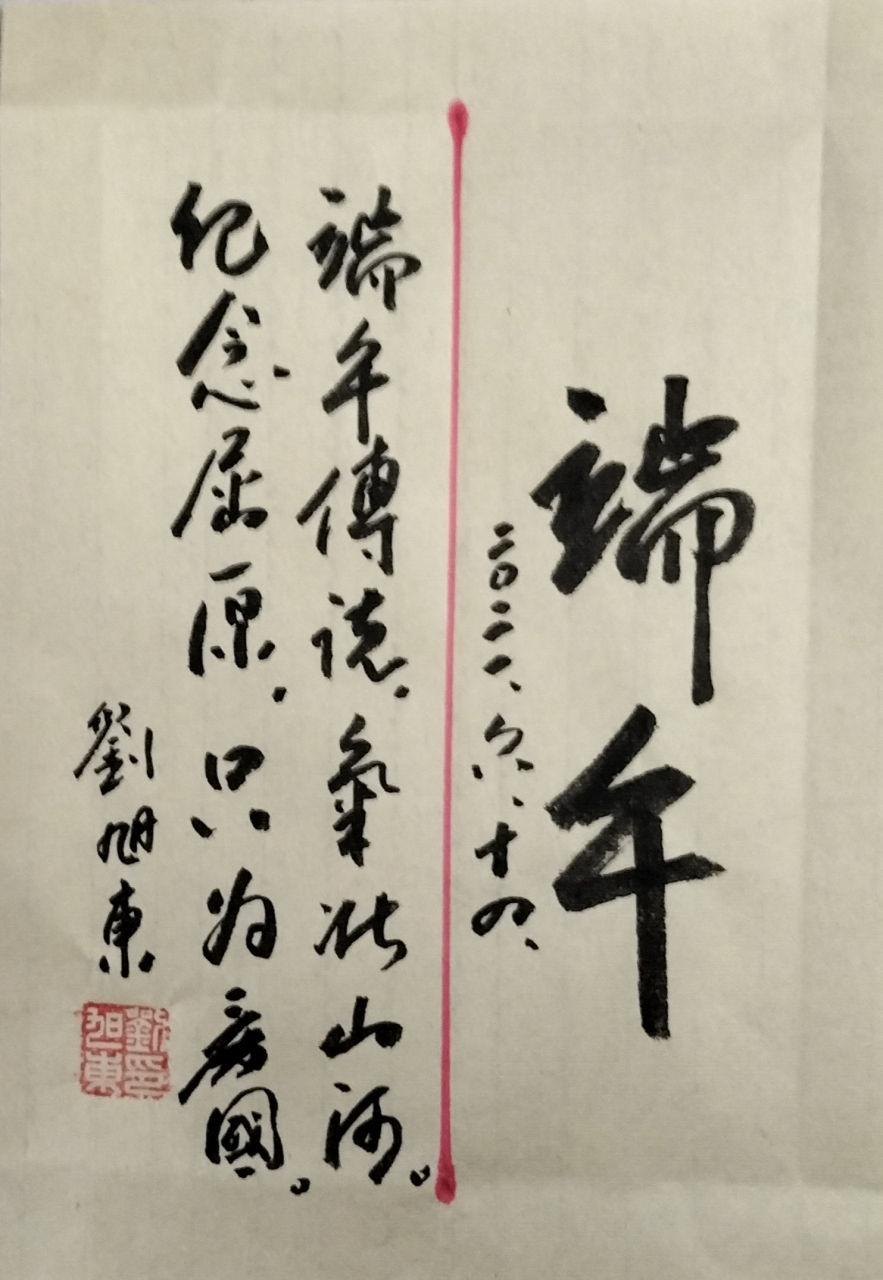 端午
二〇二一、六、十四、
端午傳說，氣壯山河。
紀念屈原，只为愛國。
劉旭東
劉印旭東